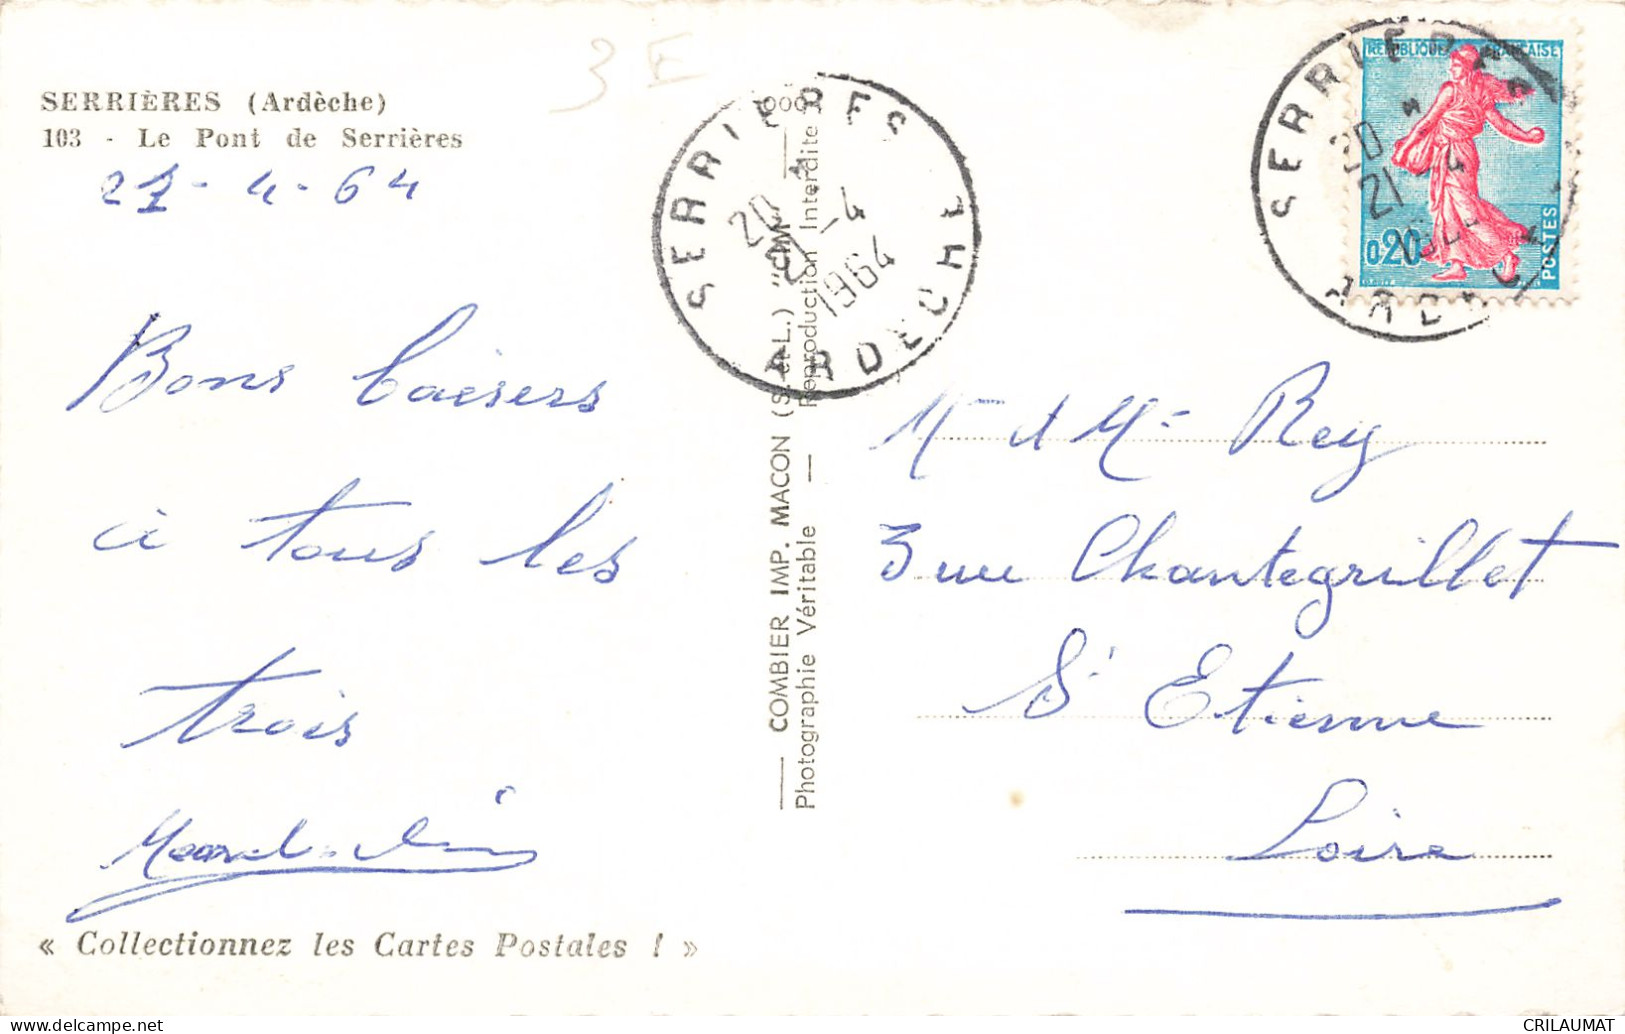 3 E
SERRIÈRES (Ardèche)
103 - Le Pont de Serrières
21-4-64
Bons baisers
à tous les
trois
« Collectionnez les Cartes Postales ! »
COMBIER IMP. MACON (S.-et-L.) "CIM"
Photographie Véritable — Reproduction Interdite
SERRIERES
20
21 -4
1964
ARDECHE
REPUBLIQUE FRANÇAISE
0,20
POSTES
SERRIERES
20
21 -4
Mr et Mme Rey
3 rue Chantegrillet
St Etienne
Loire
CRILAUMAT